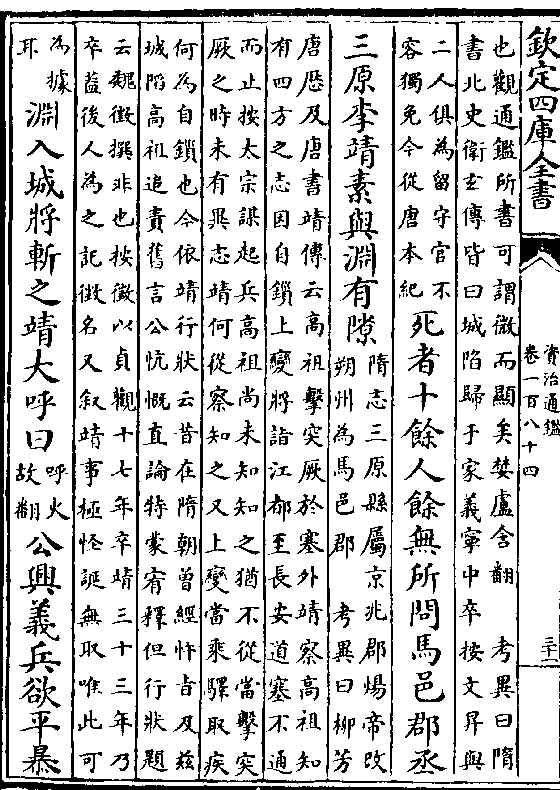 欽定四庫全書
資治通鑑
卷一百八十四
也觀通鑑所書可謂微而顯矣婪盧含翻　考異曰隋
書北史衛玄傳皆曰城陷歸于家義寧中卒按文昇與
二人俱為留守官不
容獨免今從唐本紀
死者十餘人餘無所問馬邑郡丞
三原李靖素與淵有隙
隋志三原縣屬京兆郡煬帝改
朔州為馬邑郡　考異曰柳芳
唐厯及唐書靖傳云高祖擊突厥於塞外靖察高祖知
有四方之志因自鎖上變將詣江都至長安道塞不通
而止按太宗謀起兵高祖尚未知知之猶不從當擊突
厥之時未有異志靖何從察知之又上變當乘驛取疾
何為自鎖也今依靖行狀云昔在隋朝曾經忤旨及兹
城陷高祖追責舊言公忼慨直論特蒙宥釋但行狀題
云魏徵撰非也按徵以貞觀十七年卒靖三十三年乃
卒葢後人為之記徵名又叙靖事極怪誕無取唯此可
為據
耳
淵入城將斬之靖大呼曰
呼火
故翻
公興義兵欲平暴